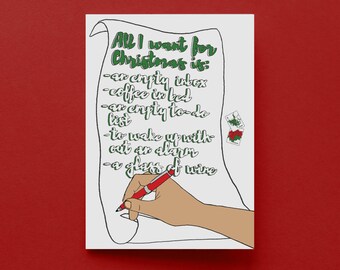 All I want for
Christmas is:
-an empty inbox
-coffee in bed
-an empty to-do
list
-to wake up with-
out an alarm
-a glass of wine